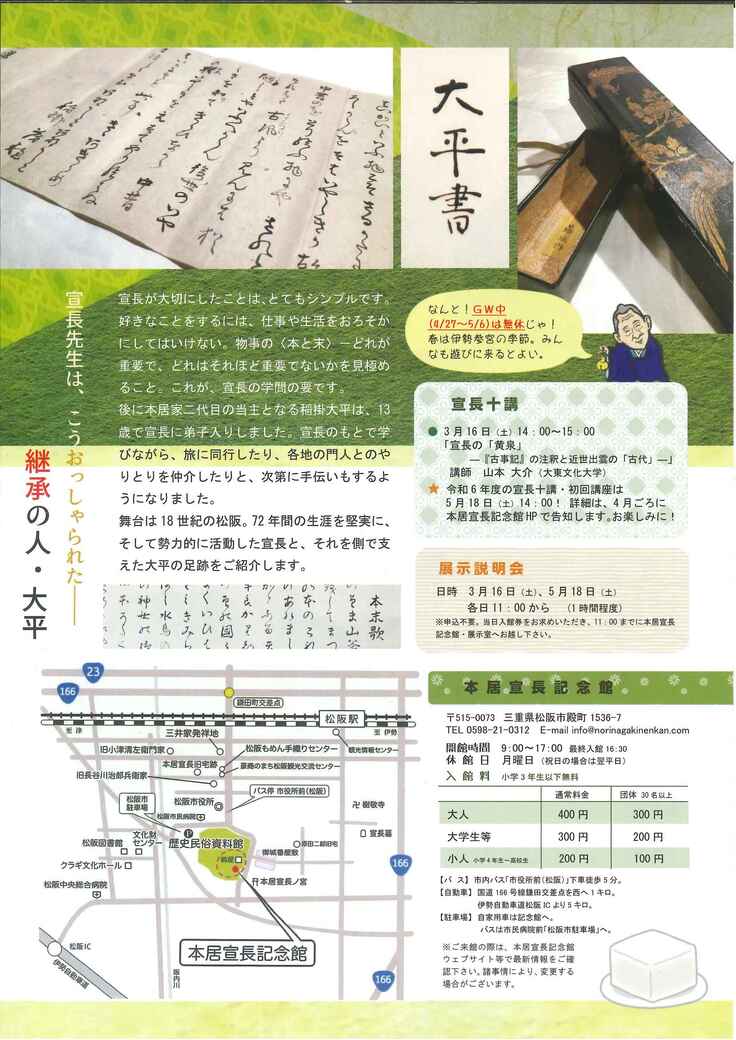 大平書
宣長先生は、こうおっしゃられた――
継承の人・大平
宣長が大切にしたことは、とてもシンプルです。
好きなことをするには、仕事や生活をおろそか
にしてはいけない。物事の〈本と末〉―どれが
重要で、どれはそれほど重要でないかを見極め
ること。これが、宣長の学問の要です。
後に本居家二代目の当主となる稲掛大平は、13
歳で宣長に弟子入りしました。宣長のもとで学
びながら、旅に同行したり、各地の門人とのや
りとりを仲介したりと、次第に手伝いもするよ
うになりました。
舞台は18世紀の松阪。72年間の生涯を堅実に、
そして勢力的に活動した宣長と、それを側で支
えた大平の足跡をご紹介します。
本末歌
なんと！GW中
(4/27〜5/6)は無休じゃ！
春は伊勢参宮の季節。みん
なも遊びに来るとよい。
宣長十講
● 3月16日（土）14：00〜15：00
「宣長の「黄泉」
―『古事記』の注釈と近世出雲の「古代」―」
講師 山本 大介（大東文化大学）
★ 令和6年度の宣長十講・初回講座は
5月18日（土）14：00！ 詳細は、4月ごろに
本居宣長記念館HPで告知します。お楽しみに！
展示説明会
日時 3月16日（土）、5月18日（土）
各日11：00から （1時間程度）
※申込不要。当日入館券をお求めいただき、11：00までに本居宣長
記念館・展示室へお越し下さい。
23
166
鎌田町交差点
松阪駅
至 津
至 伊勢
三井家発祥地
観光情報センター
旧小津清左衛門家
松阪もめん手織りセンター
本居宣長旧宅跡
豪商のまち松阪観光交流センター
旧長谷川治郎兵衛家
バス停 市役所前(松阪)
松阪市
駐車場
松阪市役所
松阪市民病院
卍 樹敬寺
P
歴史民俗資料館
宣長墓
松阪図書館
文化財
センター
原田二郎旧宅
御城番屋敷
鈴屋
クラギ文化ホール
166
本居宣長ノ宮
松阪中央総合病院
本居宣長記念館
松阪IC
伊勢自動車道
阪内川
166
本居宣長記念館
〒515-0073 三重県松阪市殿町1536-7
TEL 0598-21-0312 E-mail info@norinagakinenkan.com
開館時間 9:00〜17:00 最終入館 16:30
休館日 月曜日（祝日の場合は翌平日）
入館料 小学3年生以下無料
通常料金 団体 30名以上
大人 400円 300円
大学生等 300円 200円
小人 小学4年生〜高校生 200円 100円
【バ ス】市内バス「市役所前(松阪)」下車徒歩5分。
【自動車】国道166号線鎌田交差点を西へ1キロ。
伊勢自動車道松阪ICより5キロ。
【駐車場】自家用車は記念館へ。
バスは市民病院前「松阪市駐車場」へ。
※ご来館の際は、本居宣長記念館
ウェブサイト等で最新情報をご確
認下さい。諸事情により、変更する
場合がございます。